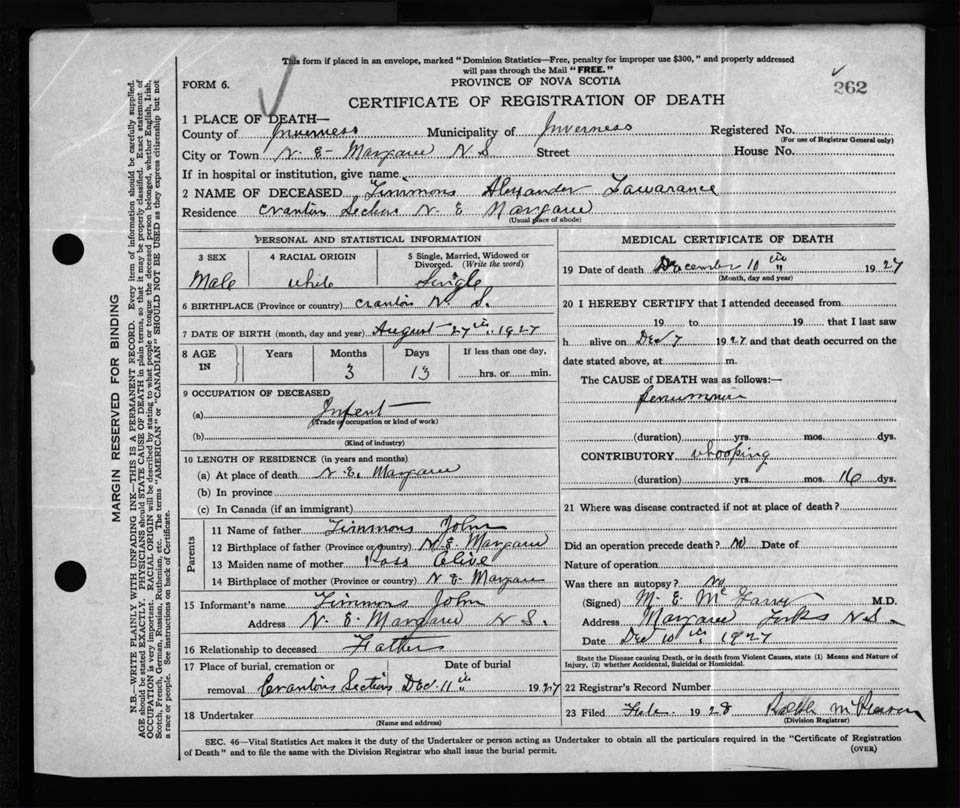 This form if placed in an envelope, marked "Dominion Statistics—Free, penalty for improper use $300," and properly addressed
will pass through the Mail "FREE."
FORM 6.
PROVINCE OF NOVA SCOTIA
262
CERTIFICATE OF REGISTRATION OF DEATH
1 PLACE OF DEATH—
County of Inverness Municipality of Inverness Registered No.
(For use of Registrar General only)
City or Town N. E. Margaree N S Street House No.
If in hospital or institution, give name
2 NAME OF DECEASED Timmons Alexander Lawarance
Residence Cranton Section N. E Margaree
(Usual place of abode)
PERSONAL AND STATISTICAL INFORMATION
3 SEX 4 RACIAL ORIGIN 5 Single, Married, Widowed or Divorced. (Write the word)
Male white Single
6 BIRTHPLACE (Province or country) Cranton N. S.
7 DATE OF BIRTH (month, day and year) August 27th, 1927
8 AGE IN Years Months Days If less than one day,
3 13 hrs. or min.
9 OCCUPATION OF DECEASED
(a) Infent
(Trade or occupation or kind of work)
(b)
(Kind of industry)
10 LENGTH OF RESIDENCE (in years and months)
(a) At place of death N. E. Margaree
(b) In province
(c) In Canada (if an immigrant)
Parents
11 Name of father Timmons John
12 Birthplace of father (Province or country) N. E. Margaree
13 Maiden name of mother Ross Olive
14 Birthplace of mother (Province or country) N E Margaree
15 Informant's name Timmons John
Address N. E. Margaree N S.
16 Relationship to deceased Father
17 Place of burial, cremation or Date of burial
removal Crantons Section Dec. 11th 1927
18 Undertaker
(Name and address)
MEDICAL CERTIFICATE OF DEATH
19 Date of death December 10th 1927
(Month, day and year)
20 I HEREBY CERTIFY that I attended deceased from
19 to 19 that I last saw
h alive on Dec 7 1927 and that death occurred on the
date stated above, at m.
The CAUSE of DEATH was as follows:—
(duration) yrs. mos. dys.
CONTRIBUTORY whooping
(duration) yrs. mos. 16 dys.
21 Where was disease contracted if not at place of death?
Did an operation precede death? No Date of
Nature of operation
Was there an autopsy? No
(Signed) M. E. Mc M.D.
Address Margaree Forks N S.
Date Dec 10th 1927
State the Disease causing Death, or in death from Violent Causes, state (1) Means and Nature of
Injury, (2) whether Accidental, Suicidal or Homicidal.
22 Registrar's Record Number
23 Filed Feb. 1928
(Division Registrar)
SEC. 46—Vital Statistics Act makes it the duty of the Undertaker or person acting as Undertaker to obtain all the particulars required in the "Certificate of Registration
of Death" and to file the same with the Division Registrar who shall issue the burial permit.
(OVER)
MARGIN RESERVED FOR BINDING
N.B.—WRITE PLAINLY WITH UNFADING INK—THIS IS A PERMANENT RECORD. Every item of information should be carefully supplied.
AGE should be stated EXACTLY. PHYSICIANS should STATE CAUSE OF DEATH in plain terms, so that it may be properly classified. Exact statement of
OCCUPATION is very important. RACIAL ORIGIN will be described by stating to what people or tongue the deceased person belonged, whether English, Irish,
Scotch, French, German, Russian, Ruthenian, etc. The terms "AMERICAN" or "CANADIAN" SHOULD NOT BE USED as they express citizenship but not
a race or people. See instructions on back of Certificate.